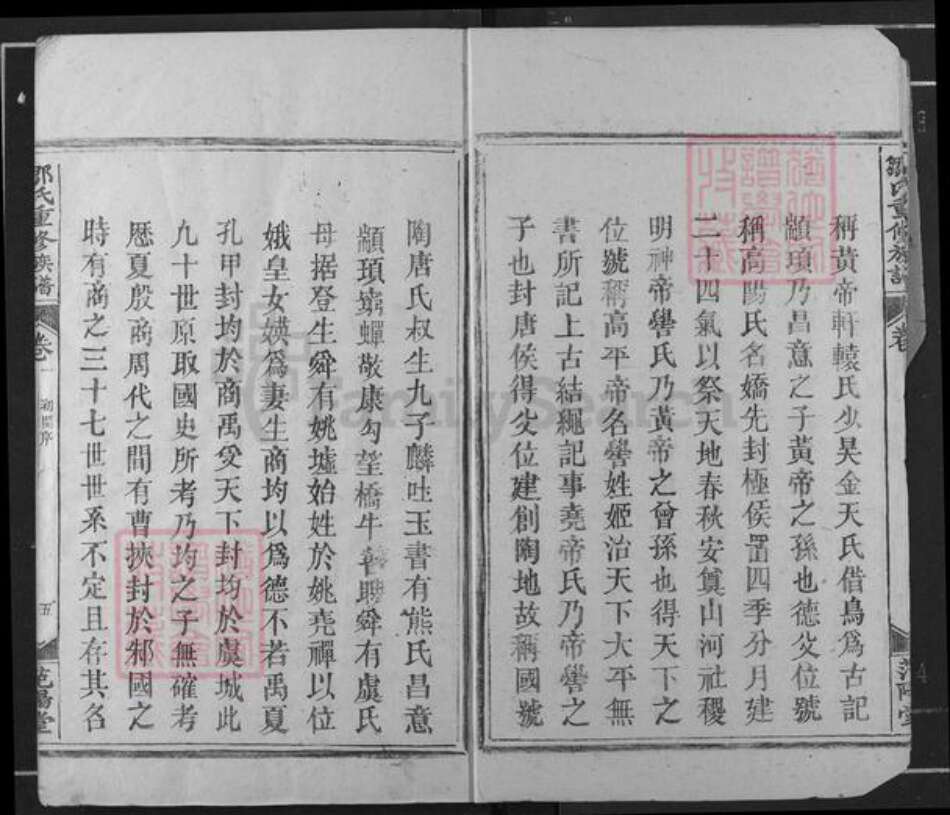 稱黃帝軒轅氏少昊金天氏借鳥爲古記
顓頊乃昌意之子黃帝之孫也德父位號
稱高陽氏名嬌先封極侯置四季分月建
二十四氣以祭天地春秋安奠山河社稷
明神帝嚳氏乃黃帝之曾孫也得天下之
位號稱高平帝名嚳姓姬治天下大平無
書所記上古結繩記事堯帝氏乃帝嚳之
子也封唐侯得父位建創陶地故稱國號
陶唐氏叔生九子麟吐玉書有熊氏昌意
顓頊窮蟬敬康勾望橋牛瞽瞍舜有虞氏
母据登生舜有姚墟始姓於姚堯禪以位
娥皇女媖爲妻生商均以爲德不若禹夏
孔甲封均於商禹受天下封均於虞城此
九十世原取國史所考乃均之子無確考
歷夏殷商周代之間有曹挾封於邾國之
時有商之三十七世世系不定且存其名
鄒氏重修族譜
卷一
五
范陽堂